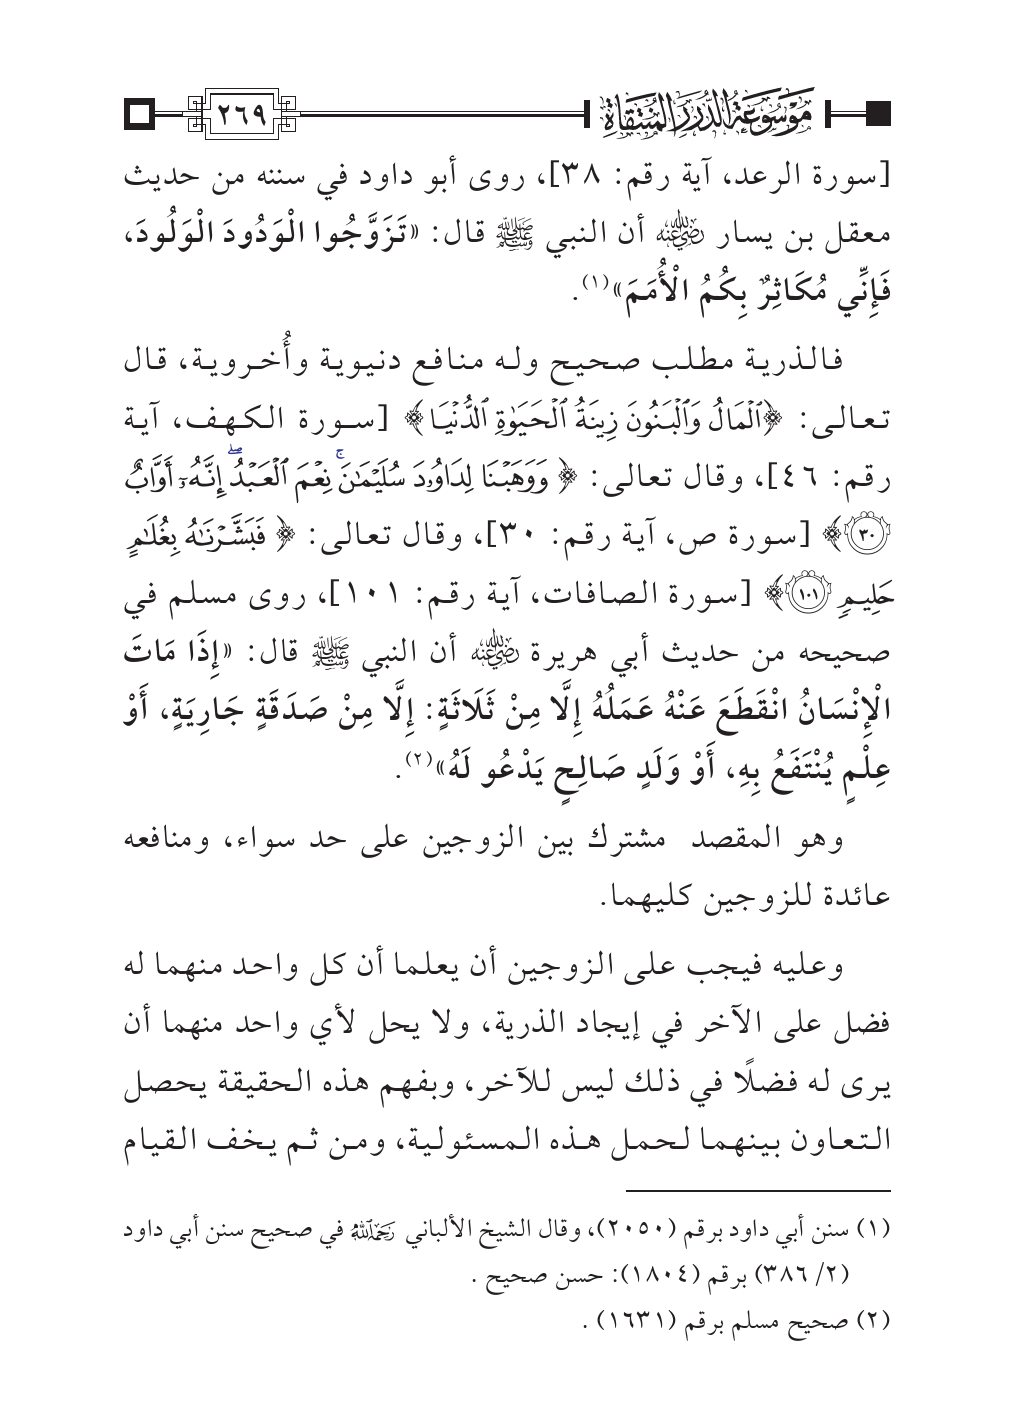 موسوعة الدرر المنتقاة ٢٦٩
[سورة الرعد، آية رقم: ٣٨]، روى أبو داود في سننه من حديث
معقل بن يسار رضي الله عنه أن النبي ﷺ قال: «تَزَوَّجُوا الْوَدُودَ الْوَلُودَ،
فَإِنِّي مُكَاثِرٌ بِكُمُ الْأُمَمَ»(١).
فالذرية مطلب صحيح وله منافع دنيوية وأُخروية، قال
تعالى: ﴿ٱلْمَالُ وَٱلْبَنُونَ زِينَةُ ٱلْحَيَوٰةِ ٱلدُّنْيَا﴾ [سورة الكهف، آية
رقم: ٤٦]، وقال تعالى: ﴿وَوَهَبْنَا لِدَاوُۥدَ سُلَيْمَٰنَ ۚ نِعْمَ ٱلْعَبْدُ ۖ إِنَّهُۥٓ أَوَّابٌ
٣٠﴾ [سورة ص، آية رقم: ٣٠]، وقال تعالى: ﴿فَبَشَّرْنَٰهُ بِغُلَٰمٍ
حَلِيمٍ ١٠١﴾ [سورة الصافات، آية رقم: ١٠١]، روى مسلم في
صحيحه من حديث أبي هريرة رضي الله عنه أن النبي ﷺ قال: «إِذَا مَاتَ
الْإِنْسَانُ انْقَطَعَ عَنْهُ عَمَلُهُ إِلَّا مِنْ ثَلَاثَةٍ: إِلَّا مِنْ صَدَقَةٍ جَارِيَةٍ، أَوْ
عِلْمٍ يُنْتَفَعُ بِهِ، أَوْ وَلَدٍ صَالِحٍ يَدْعُو لَهُ»(٢).
وهو المقصد مشترك بين الزوجين على حد سواء، ومنافعه
عائدة للزوجين كليهما.
وعليه فيجب على الزوجين أن يعلما أن كل واحد منهما له
فضل على الآخر في إيجاد الذرية، ولا يحل لأي واحد منهما أن
يرى له فضلًا في ذلك ليس للآخر، وبفهم هذه الحقيقة يحصل
التعاون بينهما لحمل هذه المسئولية، ومن ثم يخف القيام
(١) سنن أبي داود برقم (٢٠٥٠)، وقال الشيخ الألباني رحمه الله في صحيح سنن أبي داود
(٢/ ٣٨٦) برقم (١٨٠٤): حسن صحيح .
(٢) صحيح مسلم برقم (١٦٣١) .